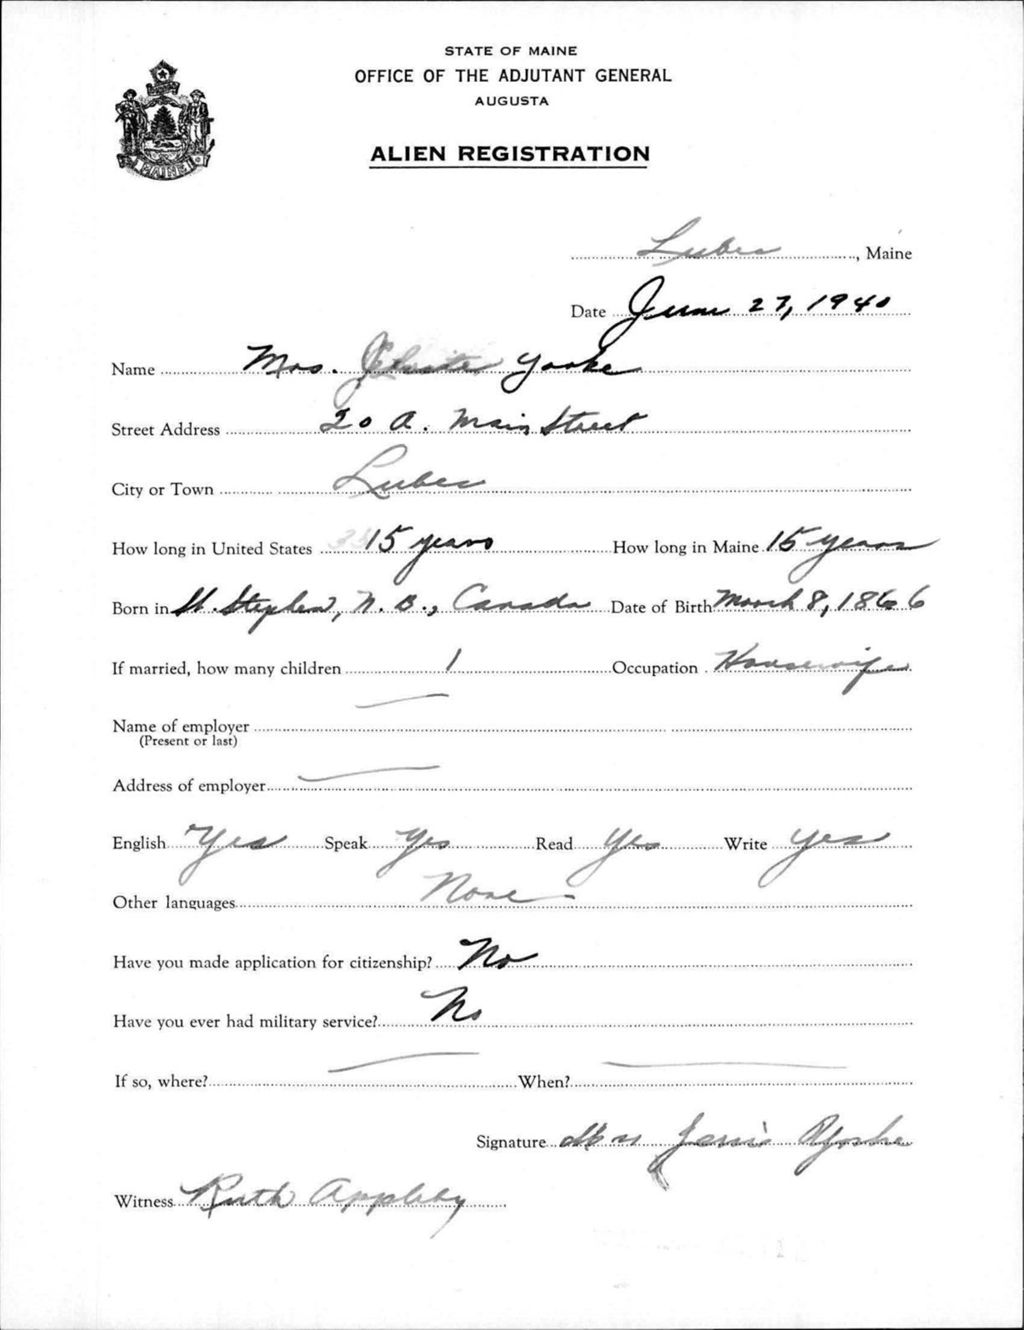 STATE OF MAINE
OFFICE OF THE ADJUTANT GENERAL
AUGUSTA
ALIEN REGISTRATION
MAINE
Lubec, Maine
Date June 27, 1940
Name Mrs. Yorke
Street Address 20 A. Main Street
City or Town Lubec
How long in United States 15 years How long in Maine 15 years
Born in St. Stephen, N. B., Canada Date of Birth March 8, 1866
If married, how many children 1 Occupation Housewife
Name of employer
(Present or last)
Address of employer
English Yes Speak Yes Read Yes Write Yes
Other languages None -
Have you made application for citizenship? No
Have you ever had military service? No
If so, where? When?
Signature Mrs Yorke
Witness Ruth Appleby